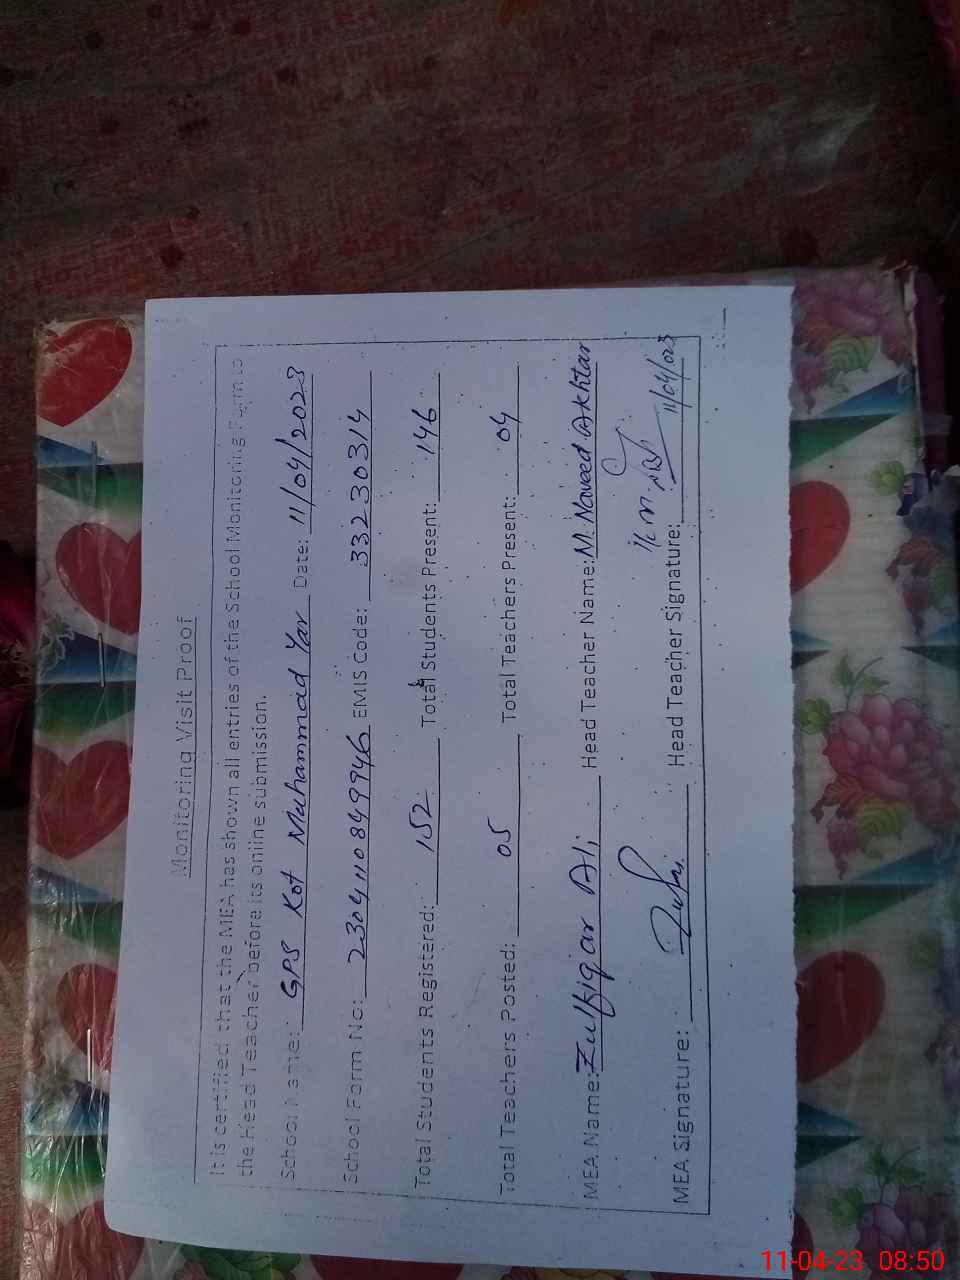 Monitoring Visit Proof
It is certified that the MEA has shown all entries of the School Monitoring Form to
the Head Teacher before its online submission.
School Name: GPS Kot Muhammad Yar Date: 11/04/2023
School Form No: 230411084 9946 EMIS Code: 33230314
Total Students Registered: 152 Total Students Present: 146
Total Teachers Posted: 05 Total Teachers Present: 04
MEA Name: Zulfiqar Ali Head Teacher Name: M. Naveed Akhtar
MEA Signature: Head Teacher Signature: 11/04/023
11-04-23 08:50